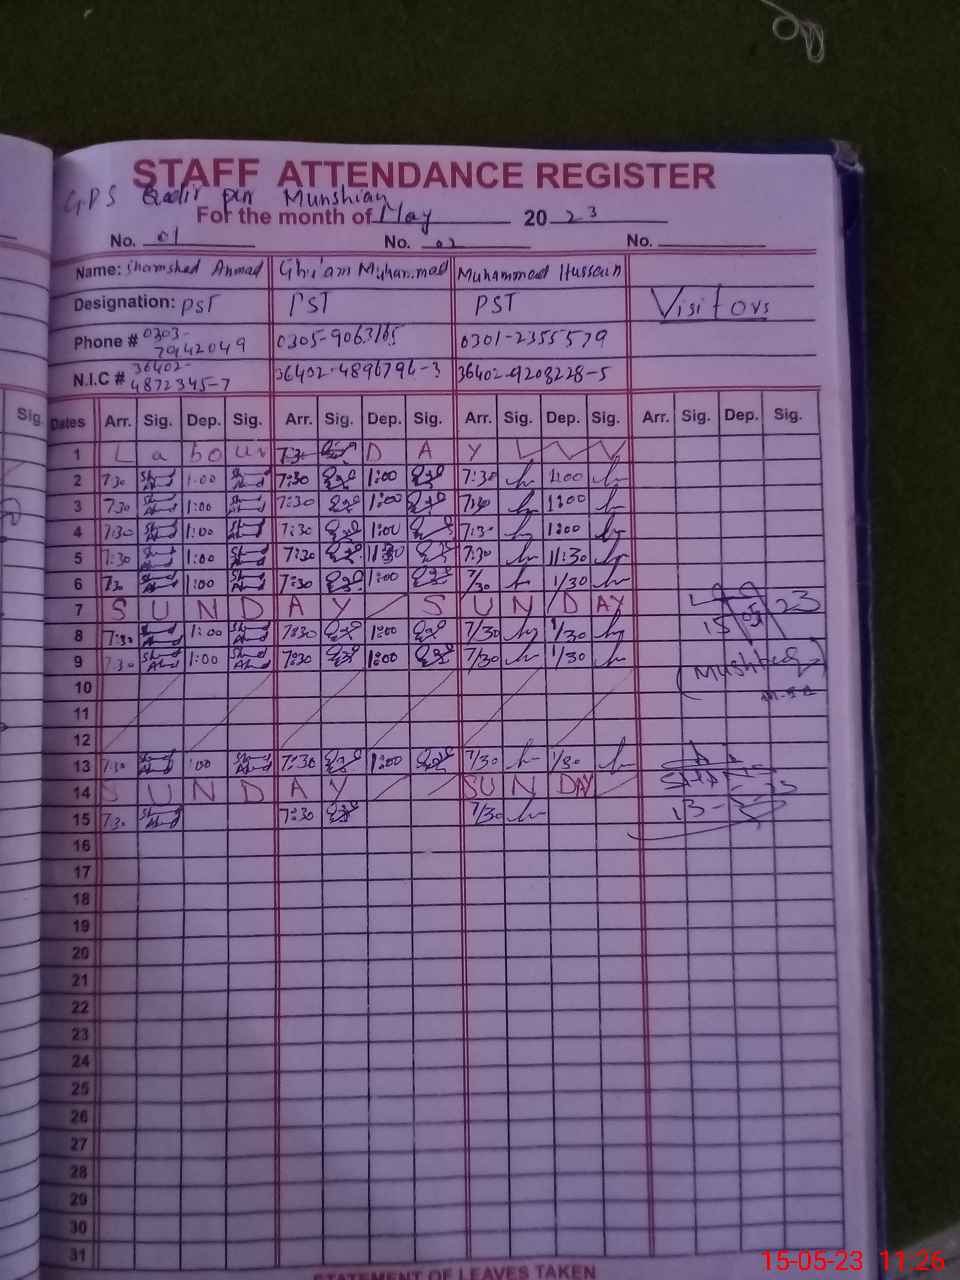 STAFF ATTENDANCE REGISTER
GPS Qadir pur Munshian
For the month of May 2023
No. 01 No. 02 No.
Name: Shamshad Ahmad Ghulam Muhammad Muhammad Hussain
Designation: PST PST PST Visitors
Phone # 0303-7942049 0305-9063165 0301-2355579
N.I.C # 36402-4872345-7 36402-4896794-3 36402-9208228-5
Sig.
Dates Arr. Sig. Dep. Sig. Arr. Sig. Dep. Sig. Arr. Sig. Dep. Sig. Arr. Sig. Dep. Sig.
1 L a b o ur 7:30 D A Y
2 7:30 1:00 7:30 1:00 7:30 1:00
3 7:30 1:00 7:30 1:00 7:30 1:00
4 7:30 1:00 7:30 1:00 7:30 1:00
5 7:30 1:00 7:30 11:30 7:30 11:30
6 7:30 1:00 7:30 1:00 7/30 1/30
7 S U N D A Y S U N D AY
8 7:30 1:00 7:30 1:00 7/30 1/30
9 7:30 1:00 7:30 1:00 7/30 1/30
15 05 23
(Mushtaq)
10
11
12
13 7:30 :00 7:30 1:00 7/30 1/30
14 S U N D A Y SU N DAY
15 7:30 7:30 7/30
16
17
18
19
20
21
22
23
24
25
26
27
28
29
30
31
STATEMENT OF LEAVES TAKEN
15-05-23 11:26